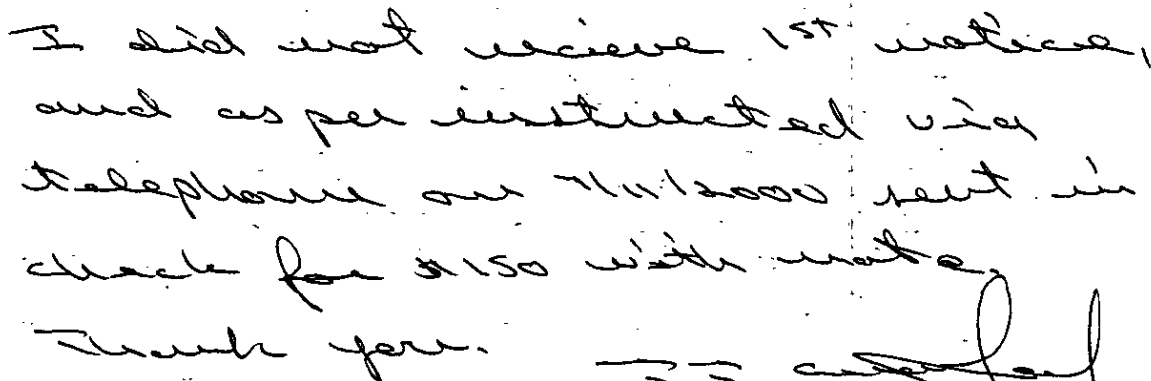 I did not recieve 1st notice,
and as per instructed via
telephone on 7/11/2000 sent in
check for $150 with note.
Thank you.